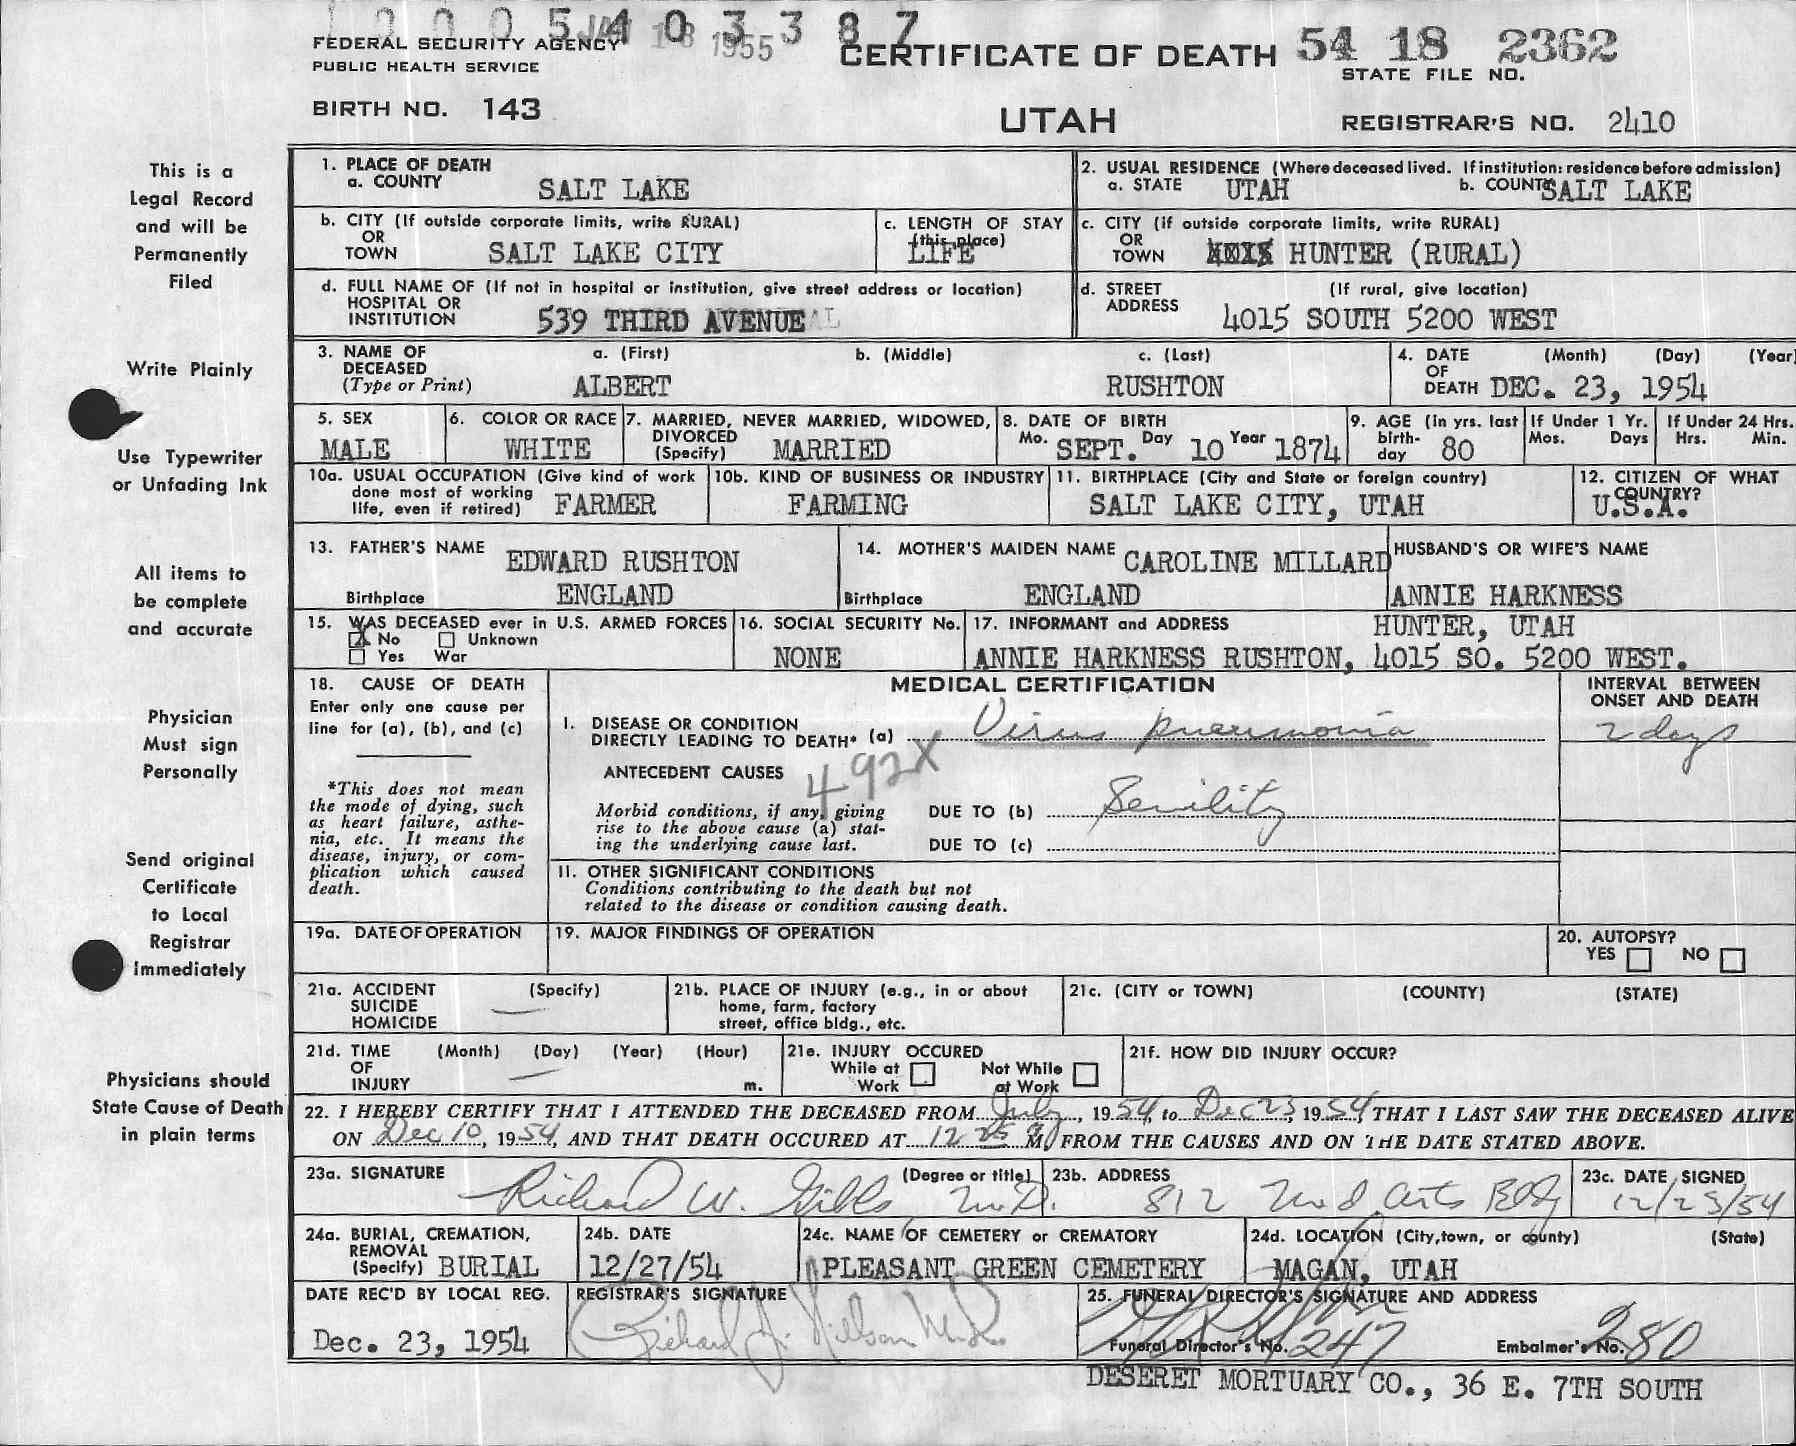 12005403387
JAN 18 1955
FEDERAL SECURITY AGENCY
PUBLIC HEALTH SERVICE
CERTIFICATE OF DEATH
54 18 2362
STATE FILE NO.
BIRTH NO. 143
UTAH
REGISTRAR'S NO. 2410
This is a
Legal Record
and will be
Permanently
Filed
Write Plainly
Use Typewriter
or Unfading Ink
All items to
be complete
and accurate
Physician
Must sign
Personally
Send original
Certificate
to Local
Registrar
Immediately
Physicians should
State Cause of Death
in plain terms
1. PLACE OF DEATH
a. COUNTY SALT LAKE
2. USUAL RESIDENCE (Where deceased lived. If institution: residence before admission)
a. STATE UTAH b. COUNTY SALT LAKE
b. CITY (If outside corporate limits, write RURAL)
OR
TOWN SALT LAKE CITY
c. LENGTH OF STAY
(this place)
LIFE
c. CITY (if outside corporate limits, write RURAL)
OR
TOWN HUNTER (RURAL)
d. FULL NAME OF (If not in hospital or institution, give street address or location)
HOSPITAL OR
INSTITUTION 539 THIRD AVENUE
d. STREET (If rural, give location)
ADDRESS 4015 SOUTH 5200 WEST
3. NAME OF a. (First) b. (Middle) c. (Last)
DECEASED
(Type or Print) ALBERT RUSHTON
4. DATE (Month) (Day) (Year)
OF
DEATH DEC. 23, 1954
5. SEX
MALE
6. COLOR OR RACE
WHITE
7. MARRIED, NEVER MARRIED, WIDOWED,
DIVORCED
(Specify) MARRIED
8. DATE OF BIRTH
Mo. SEPT. Day 10 Year 1874
9. AGE (in yrs. last
birth-
day 80
If Under 1 Yr.
Mos. Days
If Under 24 Hrs.
Hrs. Min.
10a. USUAL OCCUPATION (Give kind of work
done most of working
life, even if retired) FARMER
10b. KIND OF BUSINESS OR INDUSTRY
FARMING
11. BIRTHPLACE (City and State or foreign country)
SALT LAKE CITY, UTAH
12. CITIZEN OF WHAT
COUNTRY?
U.S.A.
13. FATHER'S NAME EDWARD RUSHTON
Birthplace ENGLAND
14. MOTHER'S MAIDEN NAME CAROLINE MILLARD
Birthplace ENGLAND
HUSBAND'S OR WIFE'S NAME
ANNIE HARKNESS
15. WAS DECEASED ever in U.S. ARMED FORCES
X No Unknown
Yes War
16. SOCIAL SECURITY No.
NONE
17. INFORMANT and ADDRESS HUNTER, UTAH
ANNIE HARKNESS RUSHTON, 4015 SO. 5200 WEST.
18. CAUSE OF DEATH
Enter only one cause per
line for (a), (b), and (c)
*This does not mean
the mode of dying, such
as heart failure, asthe-
nia, etc. It means the
disease, injury, or com-
plication which caused
death.
MEDICAL CERTIFICATION
INTERVAL BETWEEN
ONSET AND DEATH
I. DISEASE OR CONDITION
DIRECTLY LEADING TO DEATH* (a) Virus pneumonia 2 days
ANTECEDENT CAUSES 492X
Morbid conditions, if any, giving
rise to the above cause (a) stat-
ing the underlying cause last.
DUE TO (b) Senility
DUE TO (c)
II. OTHER SIGNIFICANT CONDITIONS
Conditions contributing to the death but not
related to the disease or condition causing death.
19a. DATE OF OPERATION
19. MAJOR FINDINGS OF OPERATION
20. AUTOPSY?
YES NO
21a. ACCIDENT (Specify)
SUICIDE
HOMICIDE
21b. PLACE OF INJURY (e.g., in or about
home, farm, factory
street, office bldg., etc.
21c. (CITY or TOWN) (COUNTY) (STATE)
21d. TIME (Month) (Day) (Year) (Hour)
OF
INJURY m.
21e. INJURY OCCURED
While at Not While
Work at Work
21f. HOW DID INJURY OCCUR?
22. I HEREBY CERTIFY THAT I ATTENDED THE DECEASED FROM July, 1954, to Dec 23, 1954, THAT I LAST SAW THE DECEASED ALIVE
ON Dec 10, 1954, AND THAT DEATH OCCURED AT 12 25 M, FROM THE CAUSES AND ON THE DATE STATED ABOVE.
23a. SIGNATURE (Degree or title)
Richard W. Gibbs M.D.
23b. ADDRESS
812 Med Arts Bldg
23c. DATE SIGNED
12/23/54
24a. BURIAL, CREMATION,
REMOVAL
(Specify) BURIAL
24b. DATE
12/27/54
24c. NAME OF CEMETERY or CREMATORY
PLEASANT GREEN CEMETERY
24d. LOCATION (City, town, or county) (State)
MAGAN, UTAH
DATE REC'D BY LOCAL REG.
Dec. 23, 1954
REGISTRAR'S SIGNATURE
Richard J. Nillson M.D.
25. FUNERAL DIRECTOR'S SIGNATURE AND ADDRESS
Funeral Director's No. 247 Embalmer's No. 280
DESERET MORTUARY CO., 36 E. 7TH SOUTH